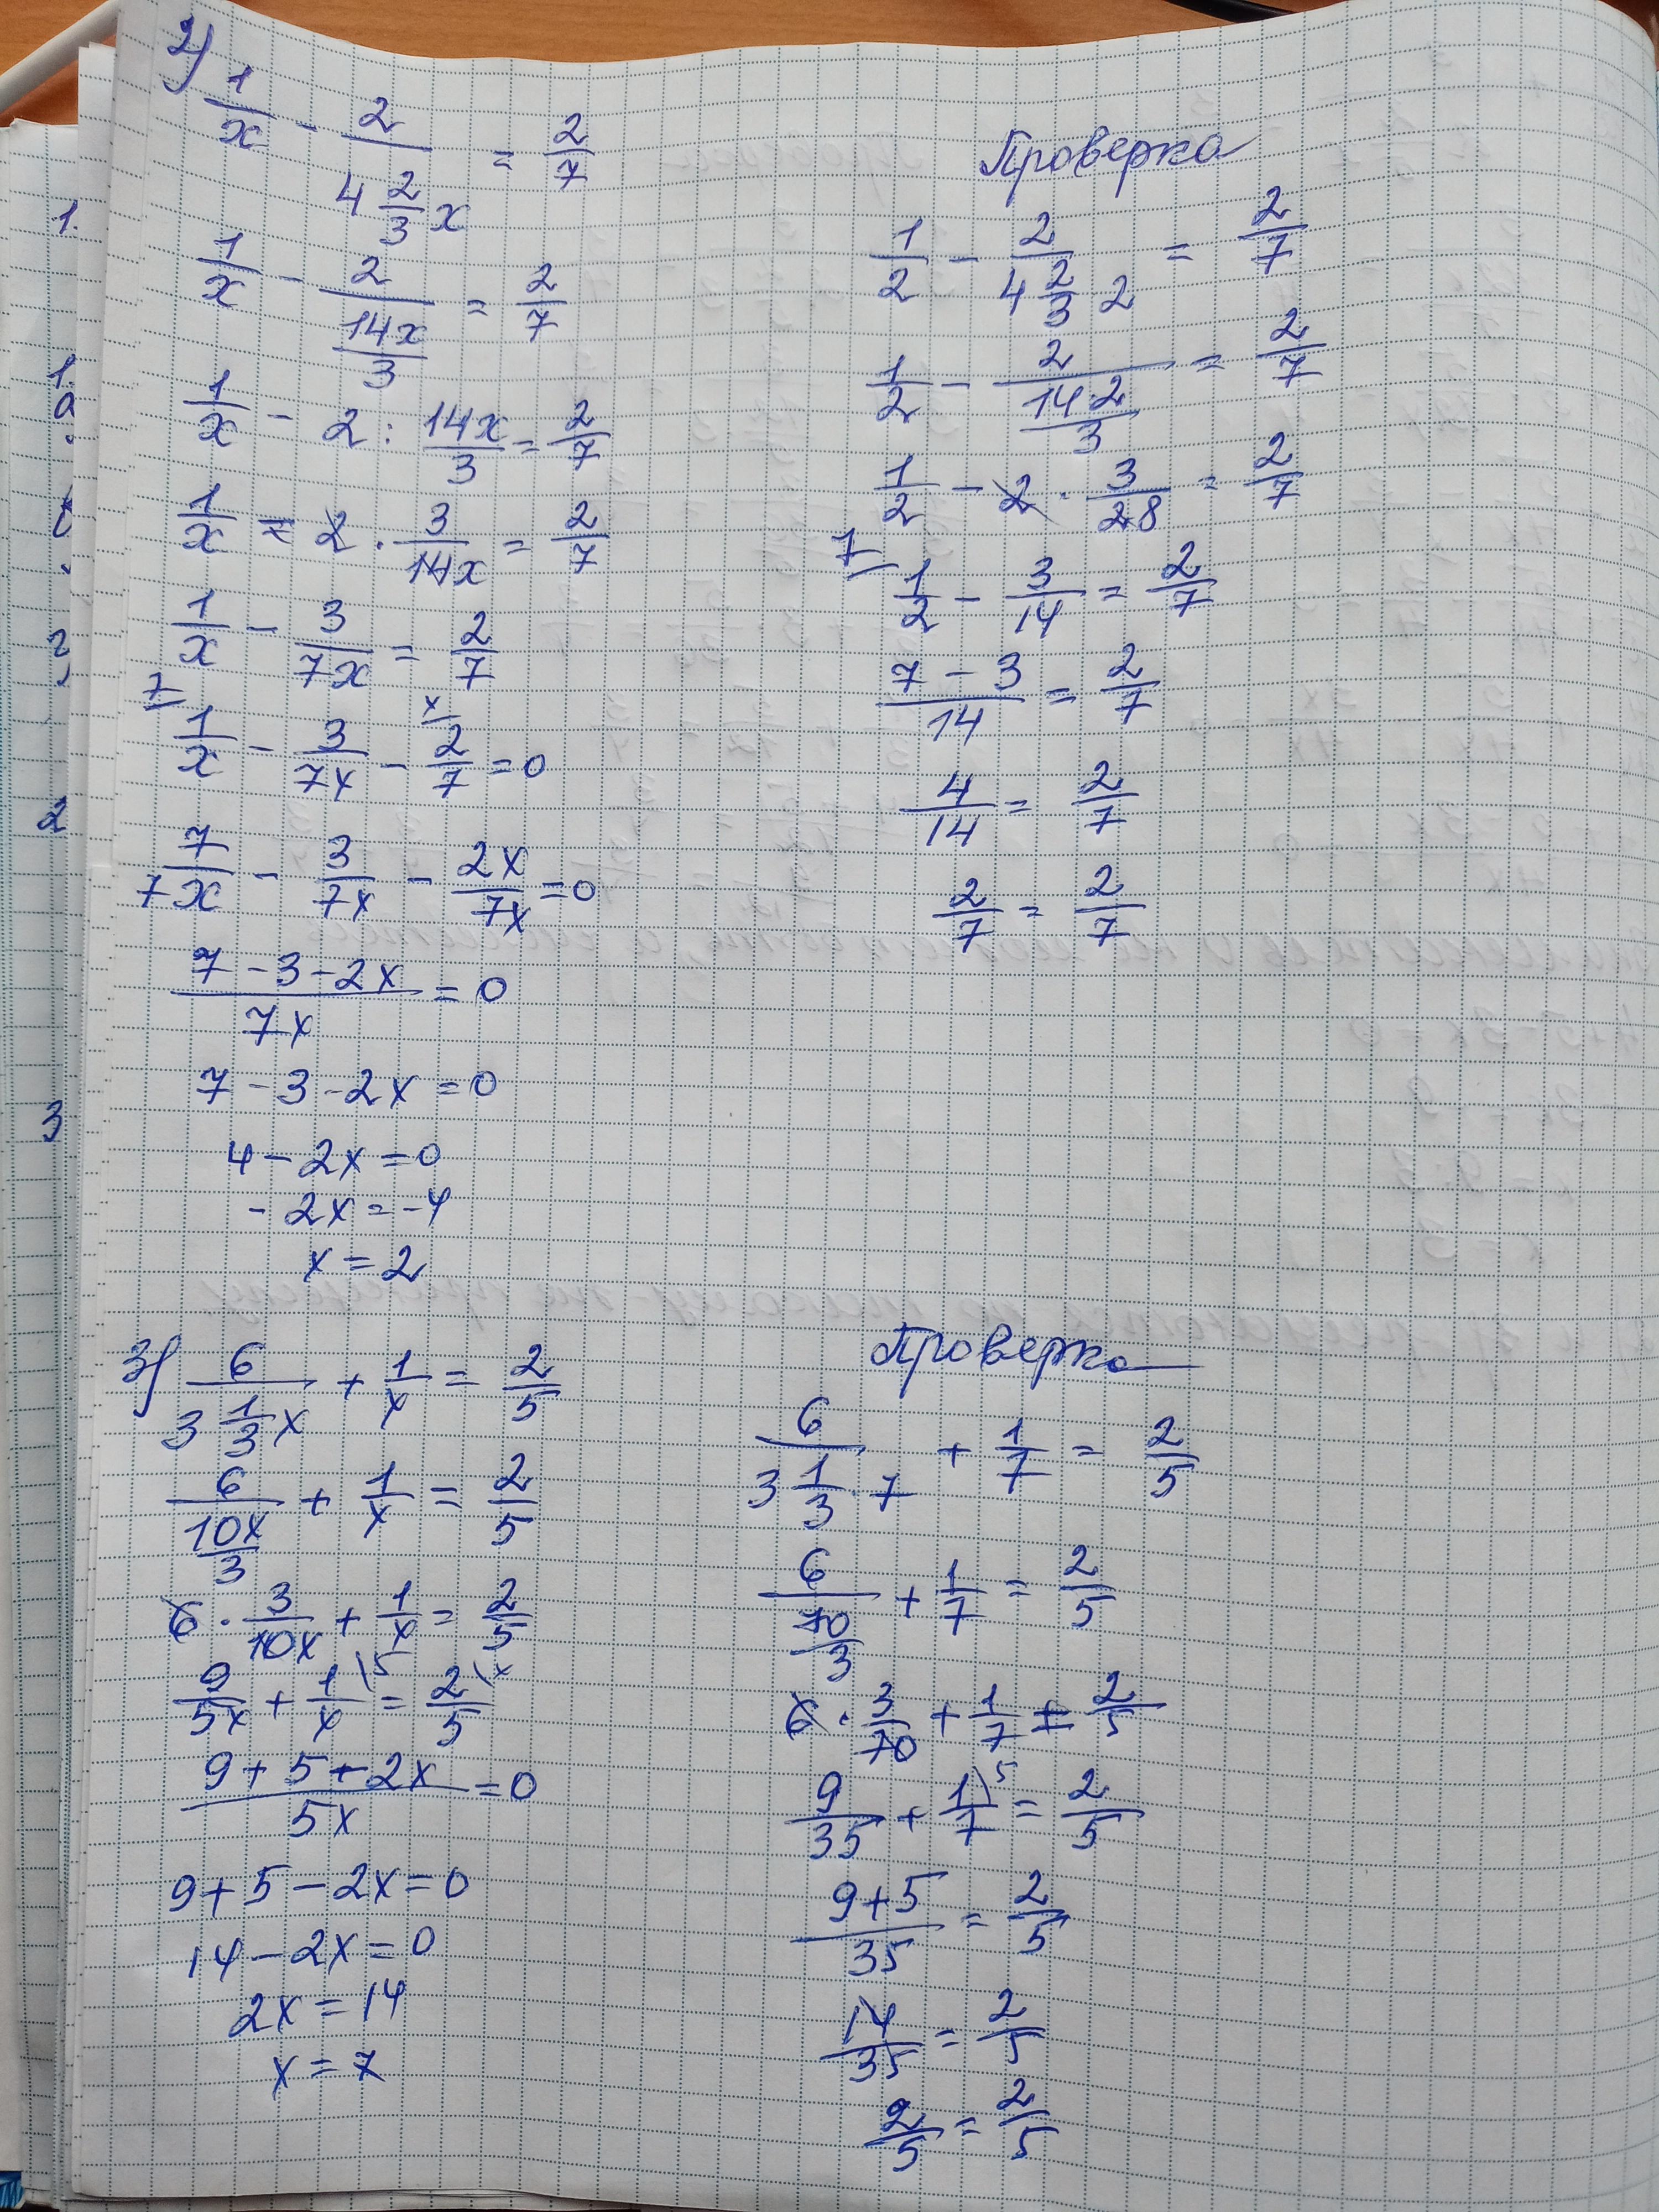 2) 1/x - 2/(4 2/3 x) = 2/7
1/x - 2/(14x/3) = 2/7
1/x - 2 : 14x/3 = 2/7
1/x = 2 · 3/14x = 2/7
1/x - 3/7x = 2/7
7 x
1/x - 3/7x - 2/7 = 0
7/7x - 3/7x - 2x/7x = 0
(7 - 3 - 2x)/7x = 0
7 - 3 - 2x = 0
4 - 2x = 0
- 2x = -4
x = 2
Проверка
1/2 - 2/(4 2/3 2) = 2/7
1/2 - 2/(14·2/3) = 2/7
1/2 - 2 · 3/28 = 2/7
7
1/2 - 3/14 = 2/7
(7 - 3)/14 = 2/7
4/14 = 2/7
2/7 = 2/7
3) 6/(3 1/3 x) + 1/x = 2/5
6/(10x/3) + 1/x = 2/5
6 · 3/10x + 1/x = 2/5
9/5x + 1/x \5 = 2/5 \x
(9 + 5 - 2x)/5x = 0
9 + 5 - 2x = 0
14 - 2x = 0
2x = 14
x = 7
Проверка
6/(3 1/3 · 7) + 1/7 = 2/5
6/(70/3) + 1/7 = 2/5
6 · 3/70 + 1/7 = 2/5
9/35 + 1/7 \5 = 2/5
(9+5)/35 = 2/5
14/35 = 2/5
2/5 = 2/5
1.
1.
а
2
3